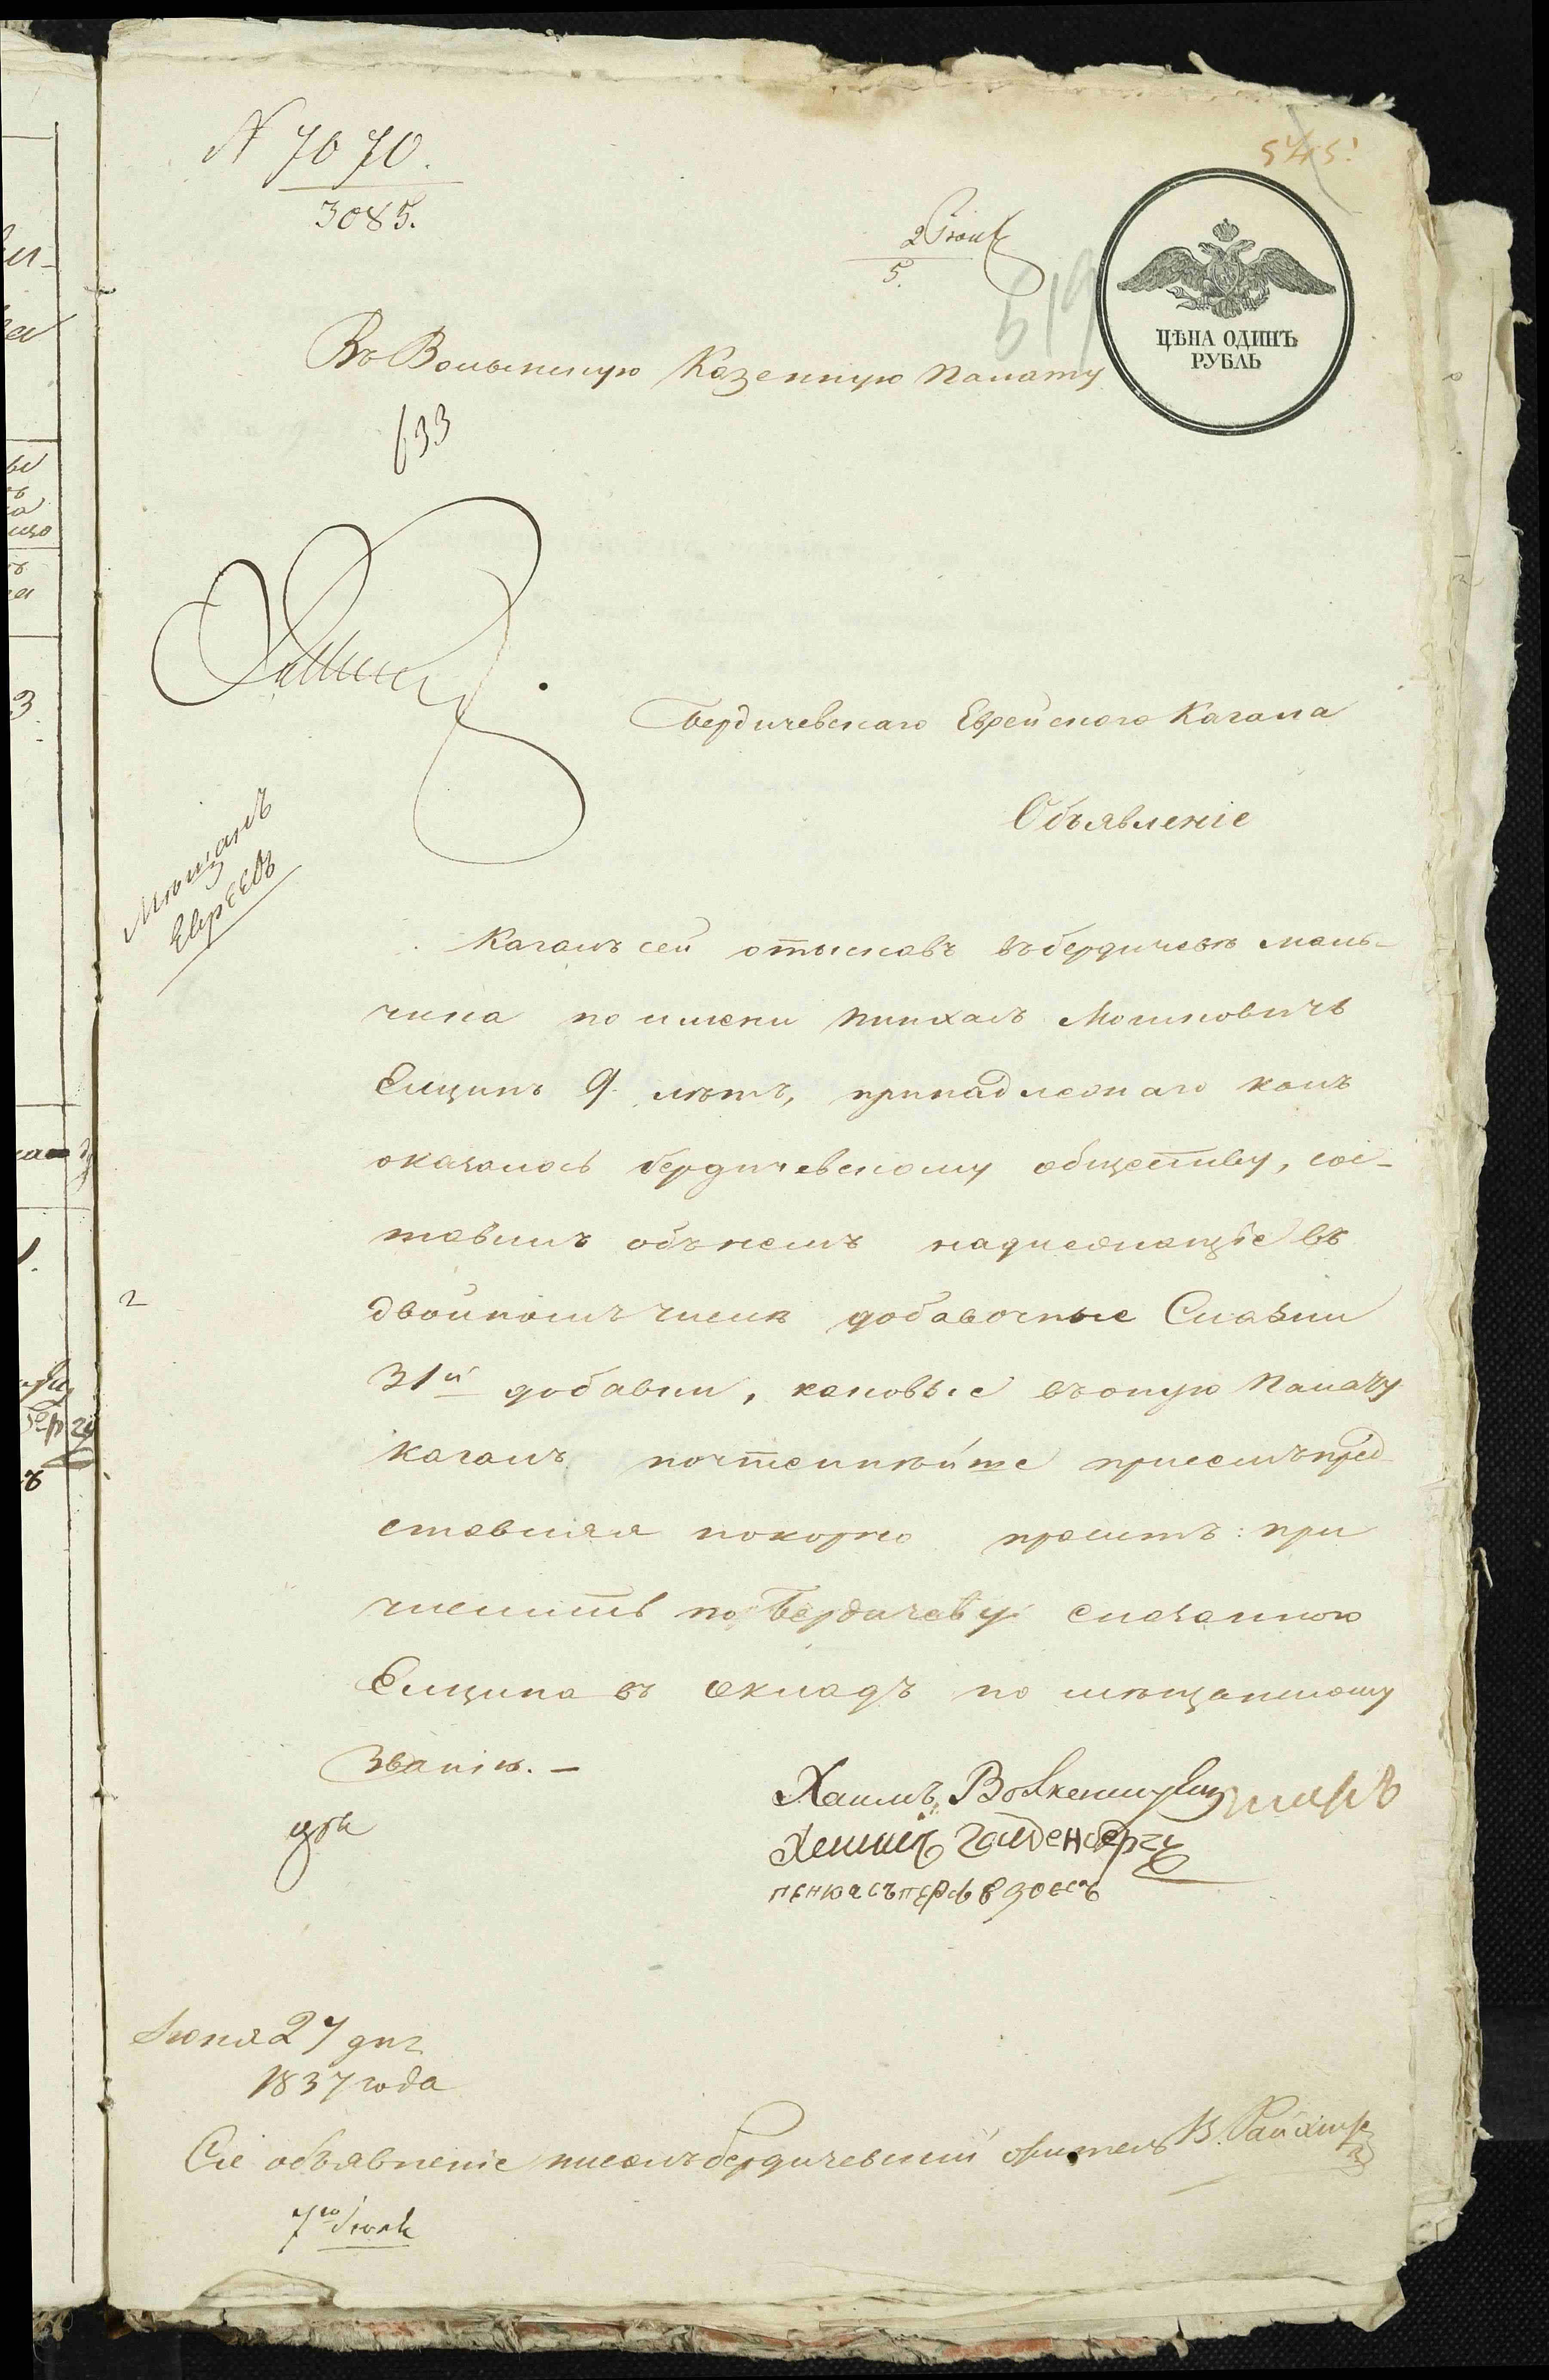 N 7070.
3085.
545
2 Июля
5.
519
ЦѢНА ОДИНЪ
РУБЛЬ
Въ Волынскую Казенную Палату
633
Бердичевскаго Еврейского Кагала
Объявленіе
Мѣщанъ
Евреевъ
Кагалъ сей отыскавъ въ бердичевѣ маль-
чика по имени Пинхасъ Мошковичъ
Елцинъ 9 лѣтъ, принадлежаго какъ
оказалось бердичевскому обществу, сос-
тавилъ объ немъ надлежащіе въ
двойномъ числѣ добавочные Сказки
31й добавки, каковые въ оную Палату
Кагалъ почтеннѣйше присемъ пред
ставляя покорно проситъ: при
числить по Бердичеву сказанного
Елцина въ окладъ по мѣщанскому
Званію. –
Хаимъ
Голденбергъ
2
Июня 27 дня
1837 года
Сіе объявленіе писалъ бердичевскій житель В.
7го Июля